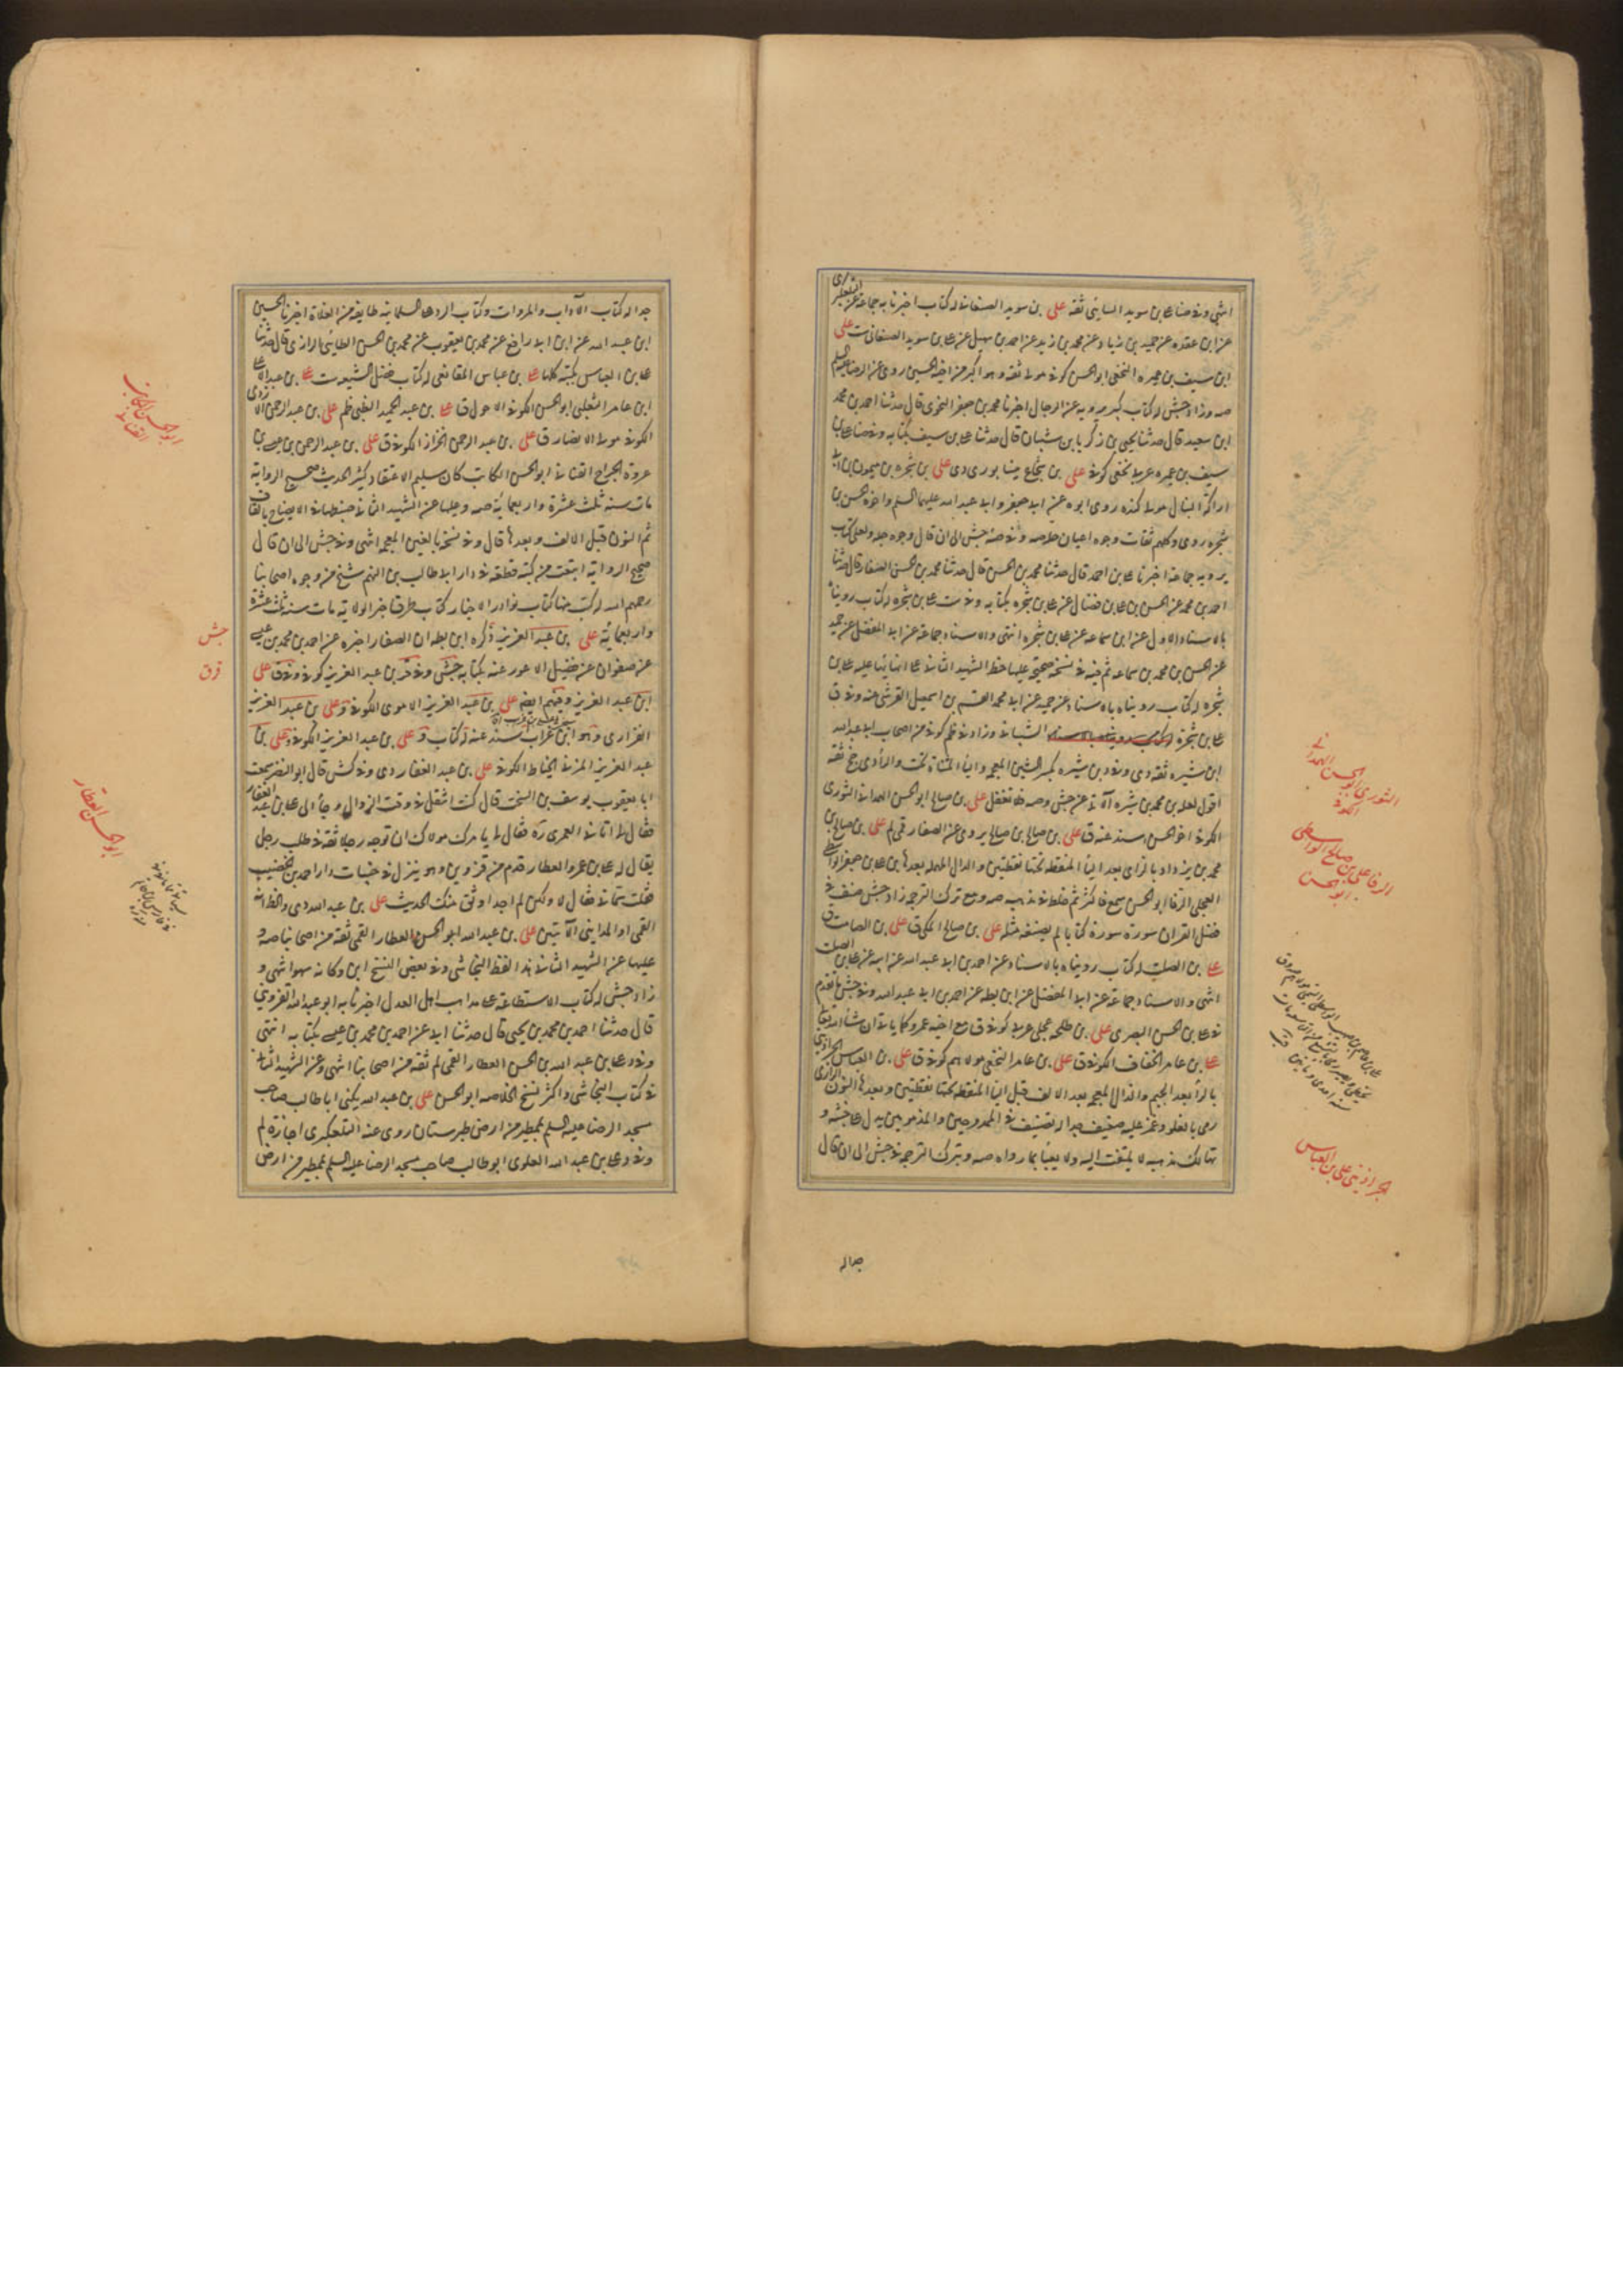 انتهى وفي ضا علي بن سويد السايي ثقة علي بن سويد الصنعاني له كتاب اخبرنا به جماعة عن التلعكبري
عن ابن عقده عن حميد بن زياد وعن محمد بن زيد عن احمد بن سهيل عن علي بن سويد الصنعاني ست علي
ابن سيف بن عميره النخعي ابو الحسن كوفي مولى ثقة وهو اكبر من اخيه الحسين روى عن الرضا عليه السلم
صه وزاد جش له كتاب كبير يرويه عن الرجال اخبرنا محمد بن جعفر النحوي قال حدثنا احمد بن محمد
ابن سعيد قال حدثنا يحيى بن زكريا بن شيبان قال حدثنا علي بن سيف بكتابه وفي ضا علي بن
سيف بن عميره عربي نخعي كوفي علي بن شجاع نيشابوري دي علي بن شجره بن ميمون بن ابي
اراكة النبال مولى كنده روى ابوه عن ابي جعفر وابي عبد الله عليهما السلم واخوه الحسن بن
شجره روى وكلهم ثقات وجوه اعيان خلاصه وفي صه جش الى ان قال وجوه جله ولعلي كتاب
يرويه جماعة اخبرنا علي بن احمد قال حدثنا محمد بن الحسن قال حدثنا محمد بن الحسن الصفار قال حدثنا
احمد بن محمد عن الحسن بن علي بن فضال عن علي بن شجره بكتابه وفي ست علي بن شجره له كتاب رويناه
بالاسناد الاول عن ابن سماعه عن علي بن شجره انتهى والاسناد جماعة عن ابي المفضل عن حميد
عن الحسن بن محمد بن سماعه ثم فيه في نسخه صحيحة عليها خط الشهيد الثاني
شجره له كتاب رويناه بالاسناد عن حميد عن ابي محمد القسم بن اسمعيل القرشي عنه وفي ق
علي بن شجرة الشيباني وزاد في ظم كوفي من اصحاب ابي عبد الله
ابن شيره ثقة دي وفي د بن شيره بكسر الشين المعجمه والياء المثناة تحت والراء دي جخ ثقة
اقول لعله بن محمد بن شيره الاتي عن جش وصه فلا تغفل علي بن صالح ابو الحسن الهمداني الثوري
الكوفي اخو الحسن اسند عنه ق علي بن صالح بن صالح يروى عن الصفار قمي لم علي بن صالح بن
محمد بن يزداد بالزاى بعد الياء المنقطه تحتها نقطتين والدال المهمله بعدها بن علي بن جعفر الواسطي
العجلي الرفا ابو الحسن سمع فاكثر ثم خلط في مذهبه صه ومع ترك الترجمه زاد جش صنف في
فضل القران سورة سورة كتابا لم يصنف مثله علي بن صالح المكي ق علي بن الصامت ق
علي بن الصلت له كتاب رويناه بالاسناد عن احمد بن ابي عبد الله عن ابيه عن علي بن الصلت
انتهى والاسناد جماعة عن ابي المفضل عن ابن بطه عن احمد بن ابي عبد الله وفي جش ما تقدم
في علي بن الحسن البصري علي بن طلحه عجلي عربي كوفي ق مع اخيه عمرو كما ياتي ان شاء الله تعالى
علي بن عامر الخفاف الكوفي ق علي بن عامر النخعي مولاهم كوفي ق علي بن العباس الجراذيني
بالراء بعد الجيم والذال المعجمه بعد الالف قبل الياء المنقطه تحتها نقطتين وبعدها النون الرازي
رمي بالغلو وغمز عليه ضعيف جدا له تصنيف في الممدوحين والمذمومين يدل على خبثه و
تهالك مذهبه لا يلتفت اليه ولا يعبأ بما رواه صه وبترك الترجمه في جش الى ان قال
جدا له
الثوري ابو الحسن الهمداني الكوفي
الرفا علي بن صالح الواسطي ابو الحسن
الجراذيني علي بن العباس
جدا له كتاب الآداب والمروات وكتاب الرد على السلمانيه طايفه من الغلاة اخبرنا الحسين
ابن عبيد الله عن ابن ابي رافع عن محمد بن يعقوب عن محمد بن الحسن الطائي الرازي قال حدثنا
علي بن العباس بكتبه كلها علي بن عباس المقانعي له كتاب فضل الشيعه ست علي بن عبد الاعلى
ابن عامر الثعلبي ابو الحسن الكوفي الاحول ق علي بن عبد الحميد الضبي ظم علي بن عبد الرحمن الازدي
الكوفي مولى الانصار ق علي بن عبد الرحمن الخزاز الكوفي ق علي بن عبد الرحمن بن عيسى بن
عروة الجراح القناني ابو الحسن الكاتب كان سليم الاعتقاد كثير الحديث صحيح الرواية
مات سنه ثلث عشرة واربعمائة صه وعليها عن الشهيد الثاني ضبطها في الايضاح بالقاف
ثم النون قبل الالف وبعدها قال وفي نسخه بالغين المعجمه انتهى وفي جش الى ان قال
صحيح الرواية ابتعت من كتبه قطعه في دار ابي طالب بن النهم شيخ من وجوه اصحابنا
رحمهم الله له كتب منها كتاب نوادر الاخبار كتاب طرق خبر الولاية مات سنه ثلث عشرة
واربعمائة علي بن عبد العزيز ذكره ابن بطه ان الصفار اخبره عن احمد بن محمد بن عيسى
عن صفوان عن فضيل الاعور عنه بكتابه جش وفي قر بن عبد العزيز كوفي وفي ق علي
ابن عبد العزيز وفيهم ايضا علي بن عبد العزيز الاموي الكوفي وعلي بن عبد العزيز
الفزاري وهو ابن غراب اسند عنه له كتاب ق علي بن عبد العزيز الكوفي وعلي بن
عبد العزيز المزني الخياط الكوفي علي بن عبد الغفار دي وفي كش قال ابو النضر سمعت
ابا يعقوب يوسف بن السخت قال كنت اتنفل في وقت الزوال وجاء الي علي بن عبد الغفار
فقال لي اتاني العمري ره فقال لي يا مرك مولاك ان توجه رجلا ثقة في طلب رجل
يقال له علي بن عمرو العطار قدم من قزوين وهو ينزل في جنبات دار احمد بن الخضيب
فقلت سماني فقال لا ولكن لم اجد اوثق منك الحديث علي بن عبد الله دي والظ انه
القمي او المدايني الآتيين علي بن عبد الله ابو الحسن العطار القمي ثقة من اصحابنا صه و
عليها عن الشهيد الثاني هذا لفظ النجاشي وفي بعض النسخ ابن وكانه سهو انتهى و
زاد جش له كتاب الاستطاعة على مذاهب اهل العدل اخبرنا به ابو عبد الله القزويني
قال حدثنا احمد بن محمد بن يحيى قال حدثنا ابي عن احمد بن محمد بن عيسى بكتابه انتهى
وفي د علي بن عبد الله بن الحسن العطار القمي لم ثقة من اصحابنا انتهى وعن الشهيد الثاني
في كتاب النجاشي واكثر نسخ الخلاصه ابو الحسن علي بن عبد الله يكنى ابا طالب صاحب
مسجد الرضا عليه السلم بمطير من ارض طبرستان روى عنه التلعكبري اجازة لم
وفي د علي بن عبد الله العلوي ابو طالب صاحب مسجد الرضا عليه السلم بمطير من ارض
ابو الحسن الكاتب القناني
جش
ق ق
ابو الحسن العطار